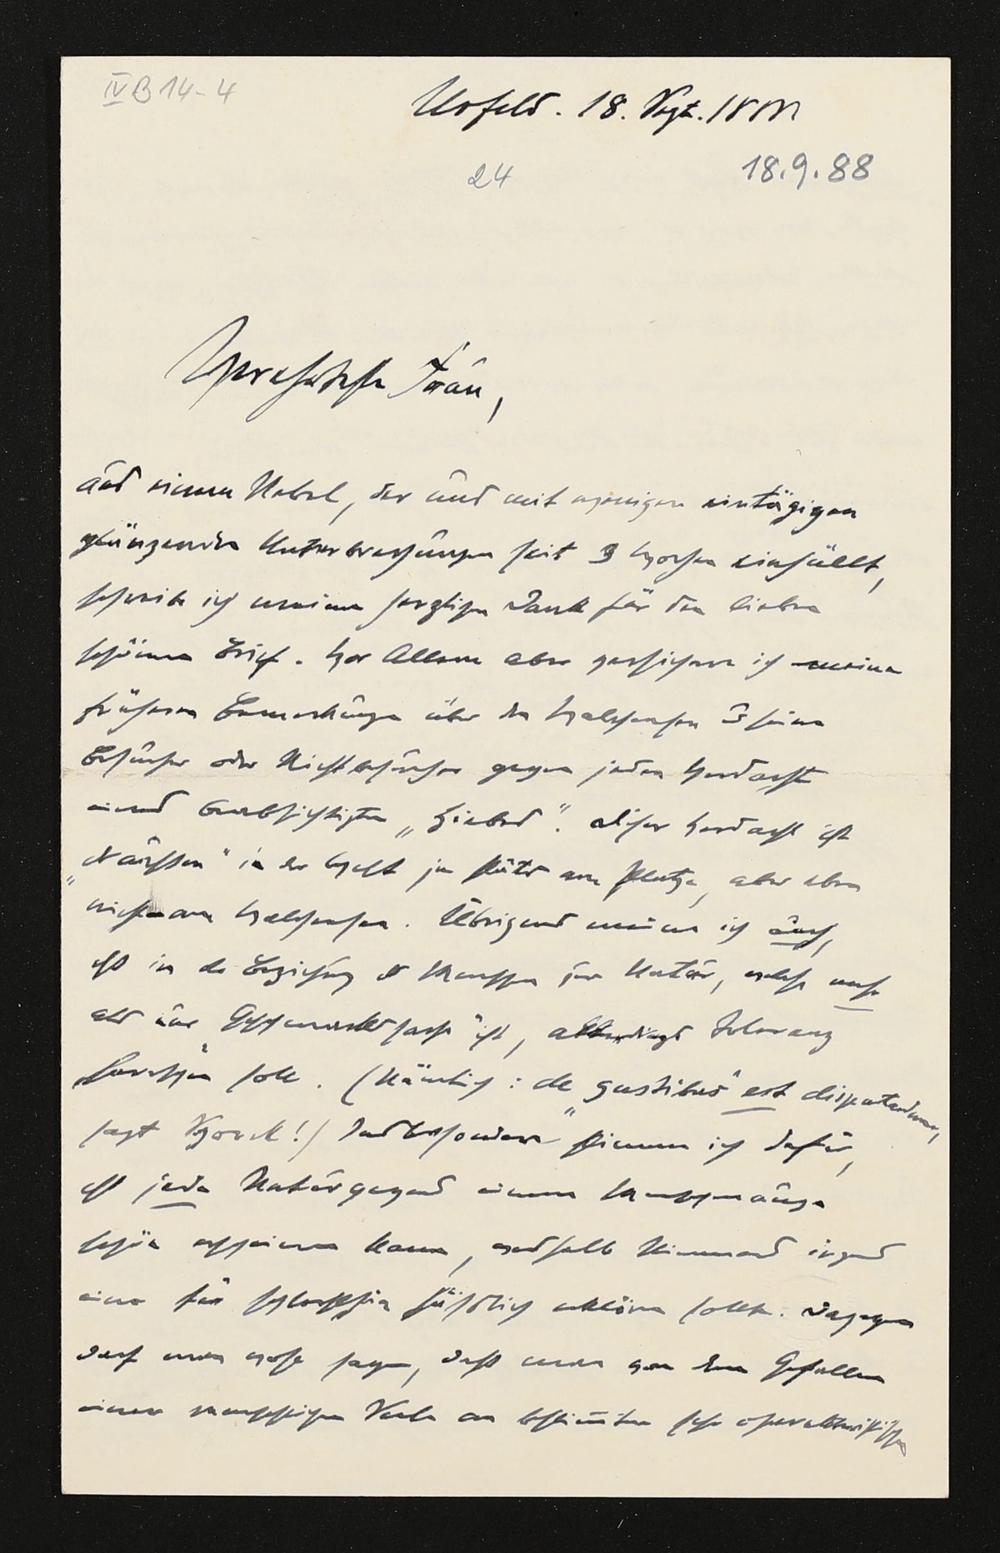 IV B 14-4
Urfeld. 18. Sept. 1888
24
18.9.88
Verehrteste Frau,
aus einem Nebel, der uns mit wenigen eintägigen
glänzenden Unterbrechungen seit 3 Wochen einhüllt,
schreibe ich meinen herzlichen Dank für den lieben
schönen Brief. Vor Allem aber versichere ich meine
früheren Bemerkungen über den Walchensee u seine
Besucher oder Nichtbesucher gegen jeden Verdacht
eines beabsichtigten „Hiebes". Dieser Verdacht ist
„draussen" in der Welt ja stets am Platze, aber eben
nicht am Walchensee. Übrigens meine ich auch,
dß in der Beziehung des Menschen zur Natur, welche mehr
als nur Geschmackssache ist, allerdings Toleranz
herrschen soll. (Nämlich: de „gustibus" est disputandum,
sagt!) Insbesondere stimme ich dafür,
dß jede Naturgegend einem Menschenauge
schön erscheinen kann, weshalb Niemand irgend
eine für schlechthin häßlich erklären sollte. Dagegen
darf man wohl sagen, daß man von dem Gefallen
einer menschlichen Seele an bestimmten sehr charakteristischen